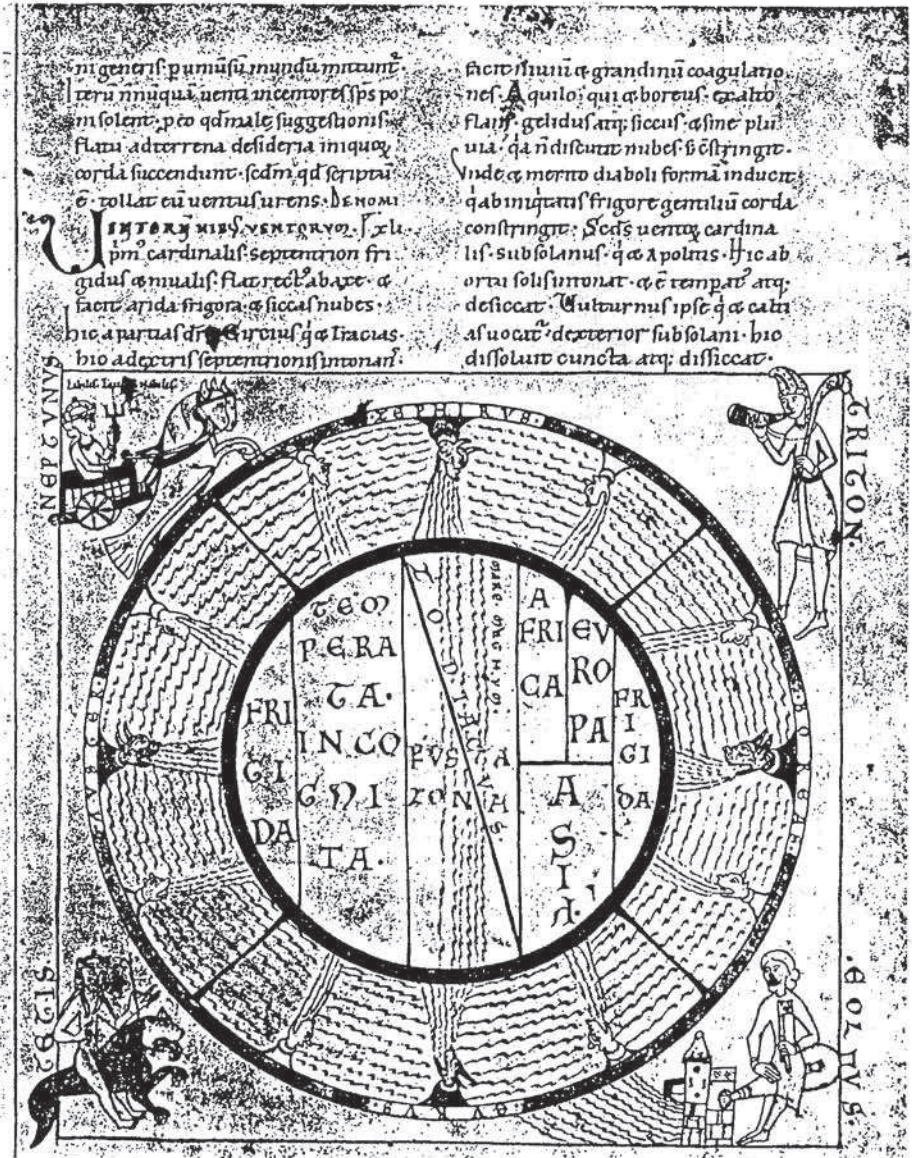 ni generis p unius̄u mundū mittunt᷑
Iterū n̄nūquā uenti incentores sp̄s po
ni solent ꝓ eo qd male suggestionis
flatu ad terrena desideria iniquoꝝ
corda succendunt scdm qd scriptū
ē tollat eū uentus urens DE NOMI
NIBVS VENTORVM xli
pm᷑ cardinalis septentrion fri
gidus & niualis flat rect᷑ ab axe &
facit arida frigora & siccas nubes
hic aparctias Circius q̇ & tracias
hic a dextris septentrionis intonan᷑
facit niuiū & grandinū coagulatio
nes Aquilo qui & boreus ex alto
flans gelidus atq; siccus & sine plu
uia q̇a n̄ discutit nubes s; c̄stringit
Vnde & merito diaboli formā induit
q̇ ab iniq̇tatis frigore gentiliū corda
constringit Scds uentoꝝ cardina
lis subsolanus q̇ & apoliotis Hic ab
ortu solis intonat & ē tempat᷑ atq;
desiccat Vulturnus ipse q̇ & calci
as uocat᷑ dexterior subsolani hic
dissoluit cuncta atq; dissiccat
TRITON
ZEPHIRVS
MARE
TEM
PERA
TA
INCO
GNI
TA
FRI
GI
DA
ZODIACVS
A
FRI
CA
EV
RO
PA
FRI
GI
DA
A
SI
A
EOLVS